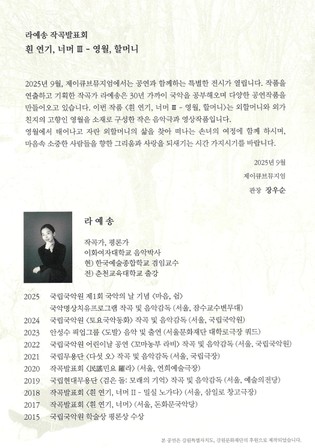 라예송 작곡발표회
흰 연기, 너머 Ⅲ - 영월, 할머니
2025년 9월, 제이큐브뮤지엄에서는 공연과 함께하는 특별한 전시가 열립니다. 작품을
연출하고 기획한 작곡가 라예송은 30년 가까이 국악을 공부해오며 다양한 공연작품을
만들어오고 있습니다. 이번 작품 《흰 연기, 너머 Ⅲ - 영월, 할머니》는 외할머니와 외가
친지의 고향인 영월을 소재로 구성한 작은 음악극과 영상작품입니다.
영월에서 태어나고 자란 외할머니의 삶을 찾아 떠나는 손녀의 여정에 함께 하시며,
마음속 소중한 사람들을 향한 그리움과 사랑을 되새기는 시간 가지시기를 바랍니다.
2025년 9월
제이큐브뮤지엄
관장 장우순
라 예 송
작곡가, 평론가
이화여자대학교 음악박사
현) 한국예술종합학교 겸임교수
전) 춘천교육대학교 출강
2025 국립국악원 제1회 국악의 날 기념 《마음, 쉼》
국악명상치유프로그램 작곡 및 음악감독 (서울, 잠수교수변무대)
2024 국립국악원 《토요국악동화》 작곡 및 음악감독 (서울, 국립국악원)
2023 안성수 픽업그룹 《도발》 음악 및 출연 (서울문화재단 대학로극장 쿼드)
2022 국립국악원 어린이날 공연 《꼬마농부 라비》 작곡 및 음악감독 (서울, 국립국악원)
2021 국립무용단 《다섯 오》 작곡 및 음악감독 (서울, 국립극장)
2020 작곡발표회 (서울, 연희예술극장)
2019 국립현대무용단 《검은 돌: 모래의 기억》 작곡 및 음악감독 (서울, 예술의전당)
2018 작곡발표회 《흰 연기, 너머 Ⅱ - 밀실 노가다》 (서울, 삼일로 창고극장)
2017 작곡발표회 《흰 연기, 너머》 (서울, 돈화문국악당)
2015 국립국악원 학술상 평론상 수상
본 공연은 강원특별자치도, 강원문화재단의 후원으로 제작되었습니다.